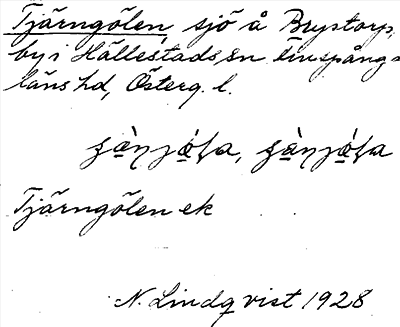 Tjärngölen, sjö å Brystorp,
by i Hällestads sn Finspånga-
läns hd, Österg. l.
Tjärngölen ek
N. Lindqvist 1928